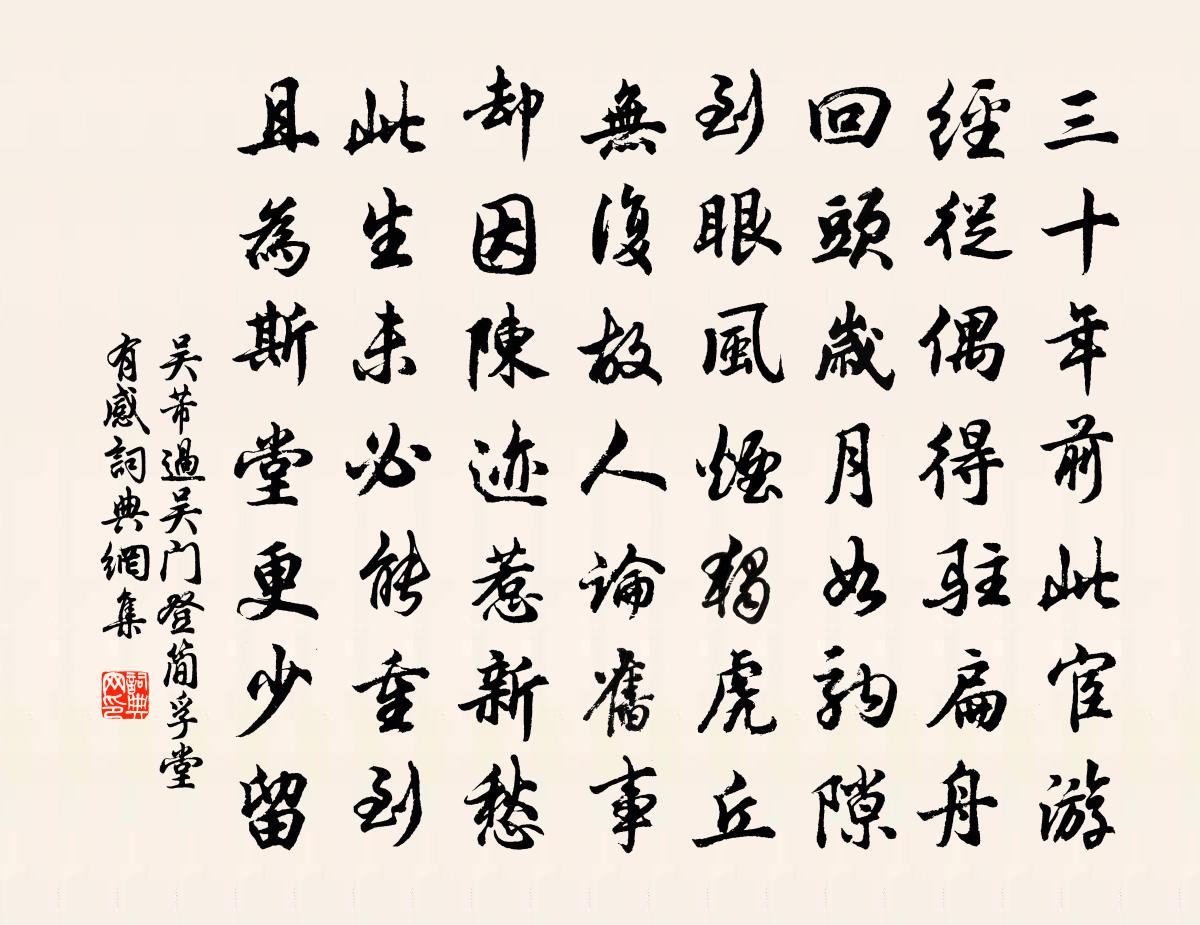 三十年前此宦游
經從偶得駐扁舟
回頭歲月如駒隙
到眼風煙獨虎丘
無復故人論舊事
却因陳迹惹新愁
此生未必能重到
且為斯堂更少留
吴芾過吴门登简孚堂
有感詞典網集
詞典网印